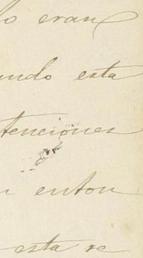 lo eran
ando esta
tenciones
n enton
esta re